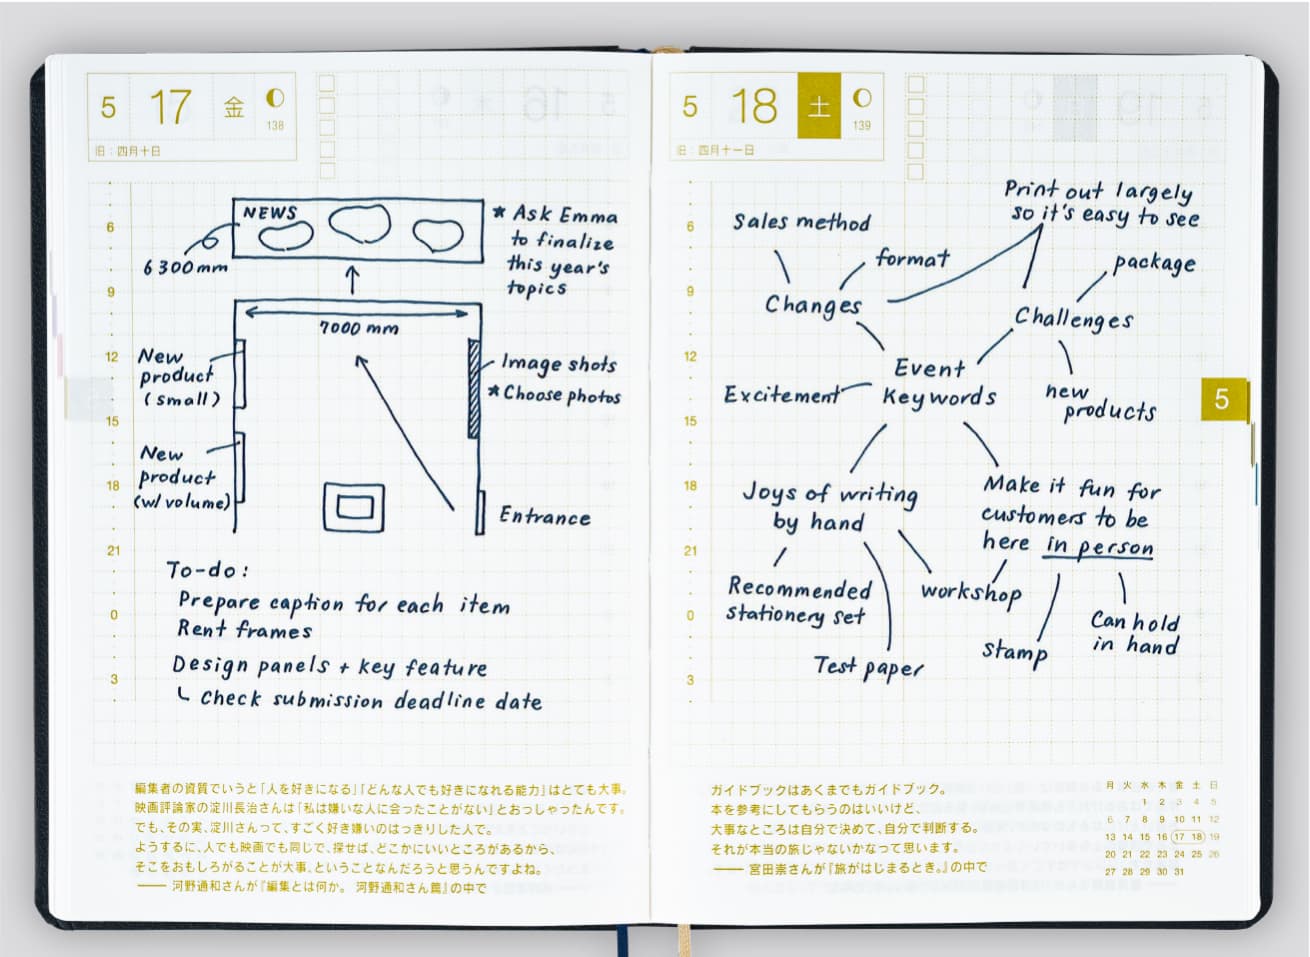 5 17 金
138
旧：四月十日
6
9
12
15
18
21
0
3
NEWS
6300mm
* Ask Emma
to finalize
this year's
topics
7000 mm
New
product
(small)
Image shots
* Choose photos
New
product
(w/volume)
Entrance
To-do:
Prepare caption for each item
Rent frames
Design panels + key feature
└ Check submission deadline date
編集者の資質でいうと「人を好きになる」「どんな人でも好きになれる能力」はとても大事。
映画評論家の淀川長治さんは「私は嫌いな人に会ったことがない」とおっしゃったんです。
でも、その実、淀川さんって、すごく好き嫌いのはっきりした人で。
ようするに、人でも映画でも同じで、探せば、どこかにいいところがあるから、
そこをおもしろがることが大事、ということなんだろうと思うんですよね。
—— 河野通和さんが『編集とは何か。 河野通和さん篇』の中で
5 18 土
139
旧：四月十一日
6
9
12
15
18
21
0
3
Print out largely
so it's easy to see
Sales method
format
package
Changes
Challenges
Event
Keywords
Excitement
new
products
Joys of writing
by hand
Make it fun for
customers to be
here in person
Recommended
stationery set
workshop
Test paper
stamp
Can hold
in hand
5
ガイドブックはあくまでもガイドブック。
本を参考にしてもらうのはいいけど、
大事なところは自分で決めて、自分で判断する。
それが本当の旅じゃないかなって思います。
—— 宮田崇さんが『旅がはじまるとき。』の中で
月 火 水 木 金 土 日
1 2 3 4 5
6 7 8 9 10 11 12
13 14 15 16 17 18 19
20 21 22 23 24 25 26
27 28 29 30 31